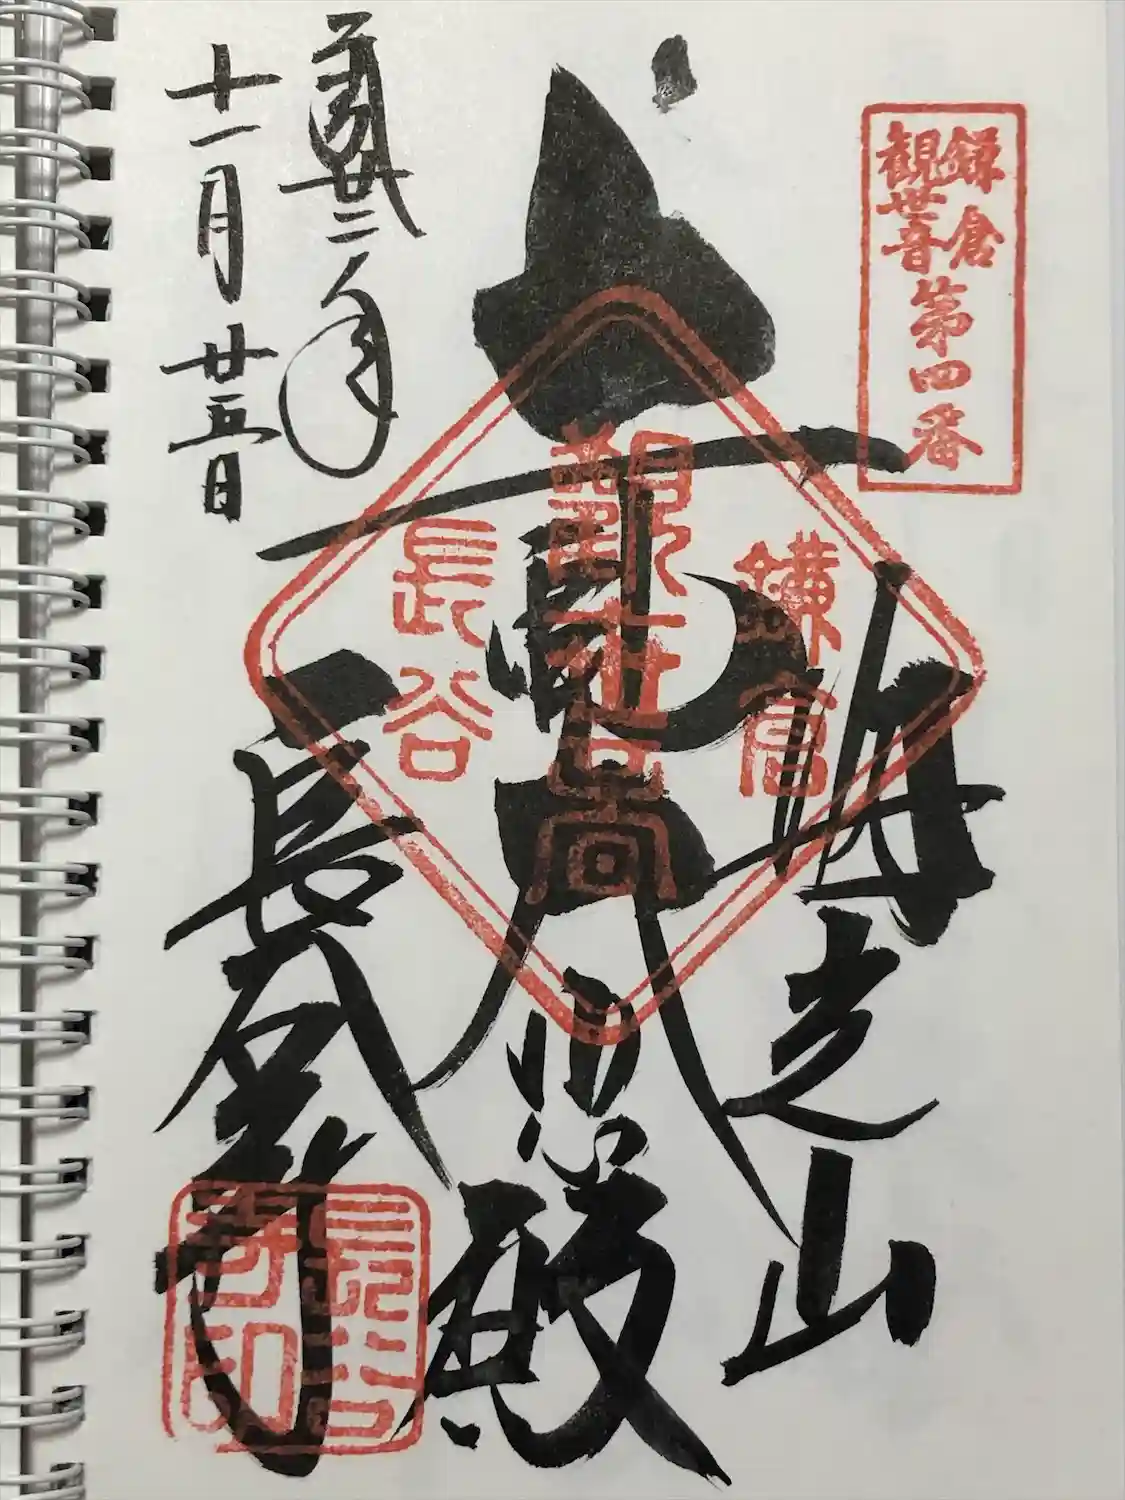 鎌倉
観世音
第四番
海光山
鎌倉
観世音
長谷
大悲殿
長谷寺
長谷寺印
廿二年
十一月廿五日